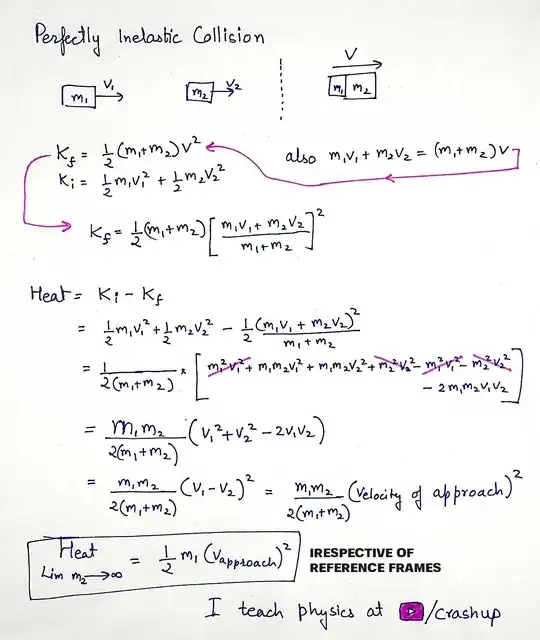 Perfectly Inelastic Collision
m₁ V₁ m₂ V₂ V m₁ m₂
K_f = 1/2 (m₁+m₂) V² also m₁V₁ + m₂V₂ = (m₁+m₂) V
K_i = 1/2 m₁V₁² + 1/2 m₂V₂²
K_f = 1/2 (m₁+m₂) [ (m₁V₁ + m₂V₂) / (m₁+m₂) ]²
Heat = K_i - K_f
= 1/2 m₁V₁² + 1/2 m₂V₂² - 1/2 (m₁V₁ + m₂V₂)² / (m₁+m₂)
= 1 / 2(m₁+m₂) × [ m₁²V₁² + m₁m₂V₁² + m₁m₂V₂² + m₂²V₂² - m₁²V₁² - m₂²V₂²
- 2m₁m₂V₁V₂ ]
= m₁m₂ / 2(m₁+m₂) (V₁² + V₂² - 2V₁V₂)
= m₁m₂ / 2(m₁+m₂) (V₁-V₂)² = m₁m₂ / 2(m₁+m₂) (Velocity of approach)²
Heat = 1/2 m₁ (Vapproach)² IRESPECTIVE OF
Lim m₂→∞ REFERENCE FRAMES
I teach physics at /crashup